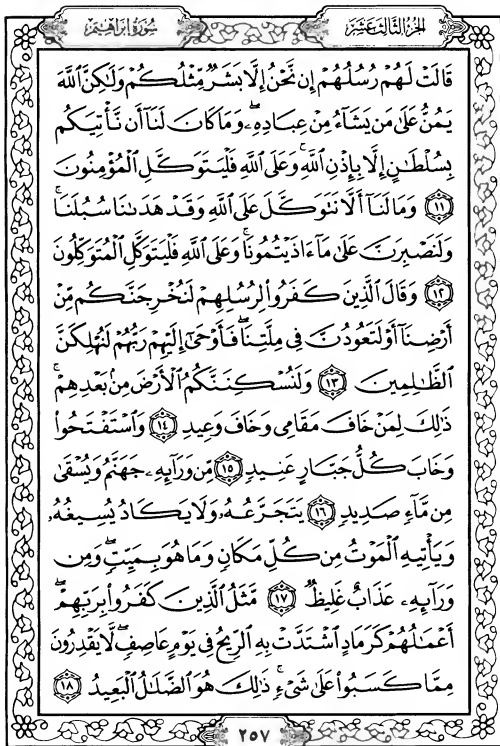 الجزء الثالث عشر
سورة ابراهيم
قَالَتْ لَهُمْ رُسُلُهُمْ إِن نَّحْنُ إِلَّا بَشَرٌ مِّثْلُكُمْ وَلَٰكِنَّ ٱللَّهَ
يَمُنُّ عَلَىٰ مَن يَشَآءُ مِنْ عِبَادِهِۦ ۖ وَمَا كَانَ لَنَآ أَن نَّأْتِيَكُم
بِسُلْطَٰنٍ إِلَّا بِإِذْنِ ٱللَّهِ ۚ وَعَلَى ٱللَّهِ فَلْيَتَوَكَّلِ ٱلْمُؤْمِنُونَ
١١ وَمَا لَنَآ أَلَّا نَتَوَكَّلَ عَلَى ٱللَّهِ وَقَدْ هَدَىٰنَا سُبُلَنَا ۚ
وَلَنَصْبِرَنَّ عَلَىٰ مَآ ءَاذَيْتُمُونَا ۚ وَعَلَى ٱللَّهِ فَلْيَتَوَكَّلِ ٱلْمُتَوَكِّلُونَ
١٢ وَقَالَ ٱلَّذِينَ كَفَرُوا۟ لِرُسُلِهِمْ لَنُخْرِجَنَّكُم مِّنْ
أَرْضِنَآ أَوْ لَتَعُودُنَّ فِى مِلَّتِنَا ۖ فَأَوْحَىٰٓ إِلَيْهِمْ رَبُّهُمْ لَنُهْلِكَنَّ
ٱلظَّٰلِمِينَ ١٣ وَلَنُسْكِنَنَّكُمُ ٱلْأَرْضَ مِنۢ بَعْدِهِمْ ۚ
ذَٰلِكَ لِمَنْ خَافَ مَقَامِى وَخَافَ وَعِيدِ ١٤ وَٱسْتَفْتَحُوا۟
وَخَابَ كُلُّ جَبَّارٍ عَنِيدٍ ١٥ مِّن وَرَآئِهِۦ جَهَنَّمُ وَيُسْقَىٰ
مِن مَّآءٍ صَدِيدٍ ١٦ يَتَجَرَّعُهُۥ وَلَا يَكَادُ يُسِيغُهُۥ
وَيَأْتِيهِ ٱلْمَوْتُ مِن كُلِّ مَكَانٍ وَمَا هُوَ بِمَيِّتٍ ۖ وَمِن
وَرَآئِهِۦ عَذَابٌ غَلِيظٌ ١٧ مَّثَلُ ٱلَّذِينَ كَفَرُوا۟ بِرَبِّهِمْ ۖ
أَعْمَٰلُهُمْ كَرَمَادٍ ٱشْتَدَّتْ بِهِ ٱلرِّيحُ فِى يَوْمٍ عَاصِفٍ ۖ لَّا يَقْدِرُونَ
مِمَّا كَسَبُوا۟ عَلَىٰ شَىْءٍ ۚ ذَٰلِكَ هُوَ ٱلضَّلَٰلُ ٱلْبَعِيدُ ١٨
٢٥٧